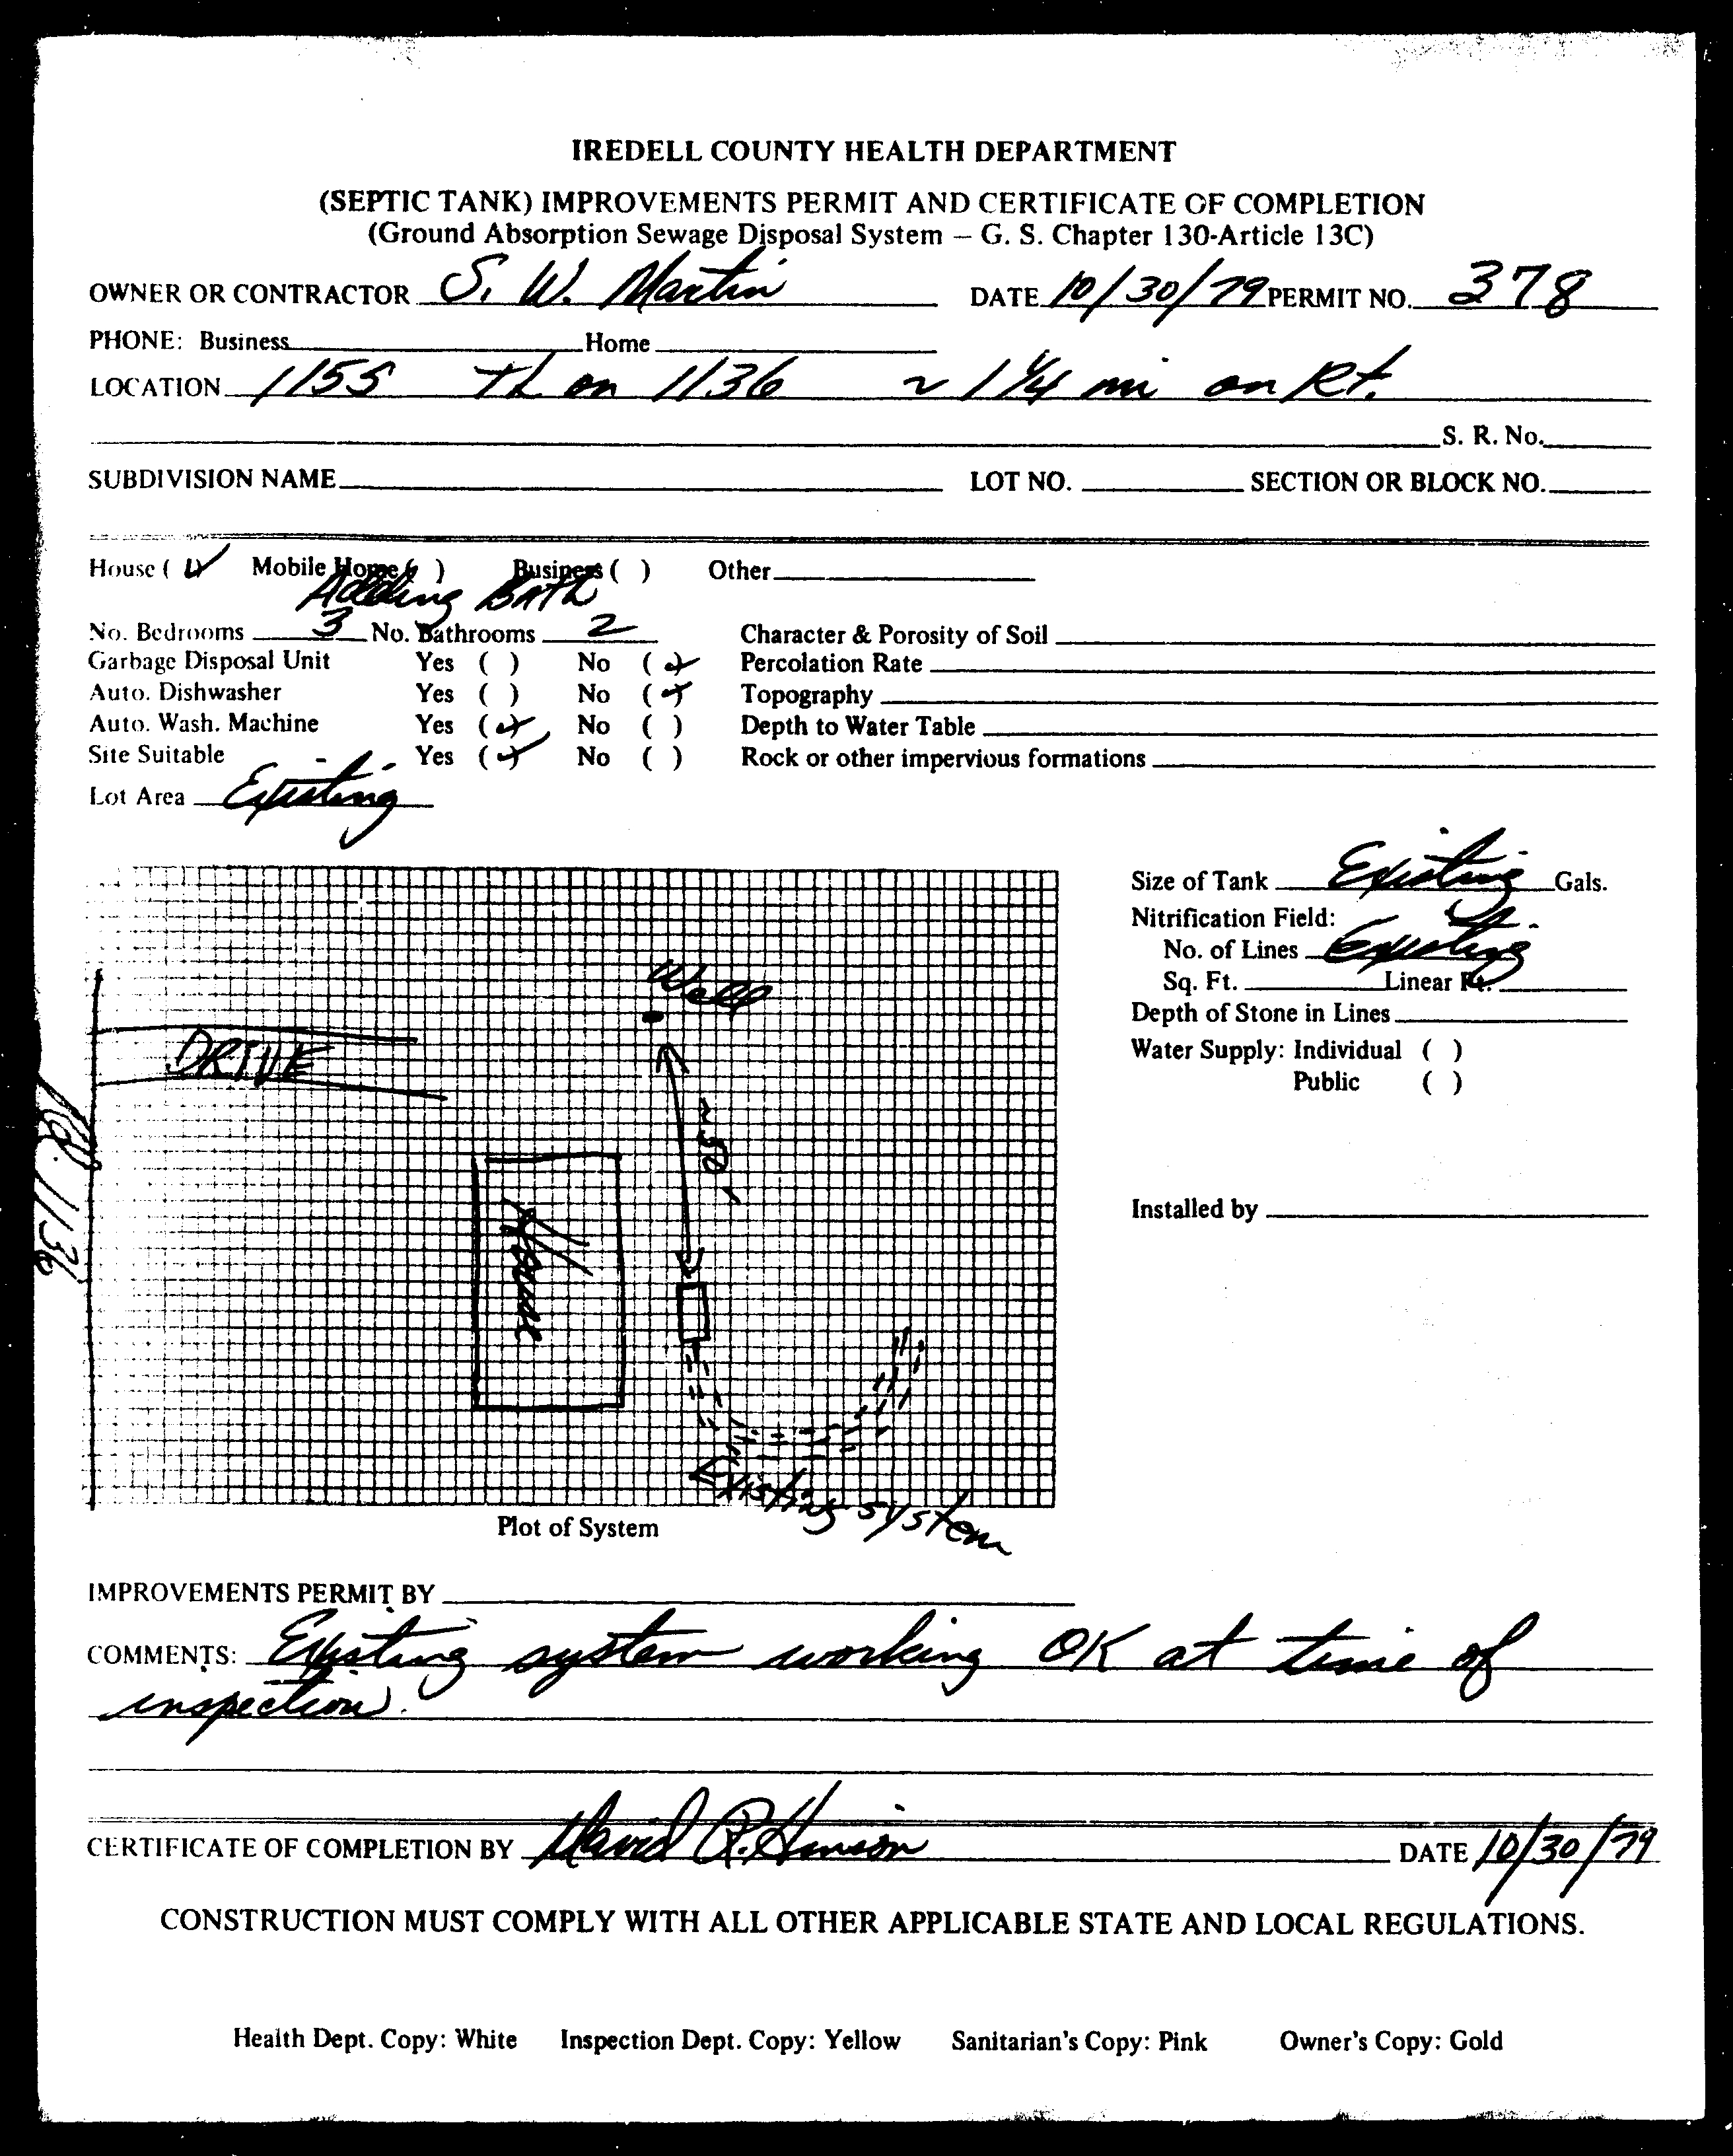 IREDELL COUNTY HEALTH DEPARTMENT
(SEPTIC TANK) IMPROVEMENTS PERMIT AND CERTIFICATE OF COMPLETION
(Ground Absorption Sewage Disposal System – G. S. Chapter 130-Article 13C)
OWNER OR CONTRACTOR S. W. Martin DATE 10/30/79 PERMIT NO. 378
PHONE: Business Home
LOCATION 1155 TL on 1136 ~ 1 1/4 mi on Rt.
S. R. No.
SUBDIVISION NAME LOT NO. SECTION OR BLOCK NO.
House (✓) Mobile Home ( ) Business ( ) Other
Adding Bath
No. Bedrooms 3 No. Bathrooms 2 Character & Porosity of Soil
Garbage Disposal Unit Yes ( ) No (✓) Percolation Rate
Auto. Dishwasher Yes ( ) No (✓) Topography
Auto. Wash. Machine Yes (✓) No ( ) Depth to Water Table
Site Suitable Yes (✓) No ( ) Rock or other impervious formations
Lot Area Existing
Size of Tank Existing Gals.
Nitrification Field:
No. of Lines Existing
Sq. Ft. Linear Ft.
Depth of Stone in Lines
Water Supply: Individual ( )
Public ( )
Installed by
Well
DRIVE
~50'
Rd. 1136
House
Existing system
Plot of System
IMPROVEMENTS PERMIT BY
COMMENTS: Existing system working OK at time of
inspection.
CERTIFICATE OF COMPLETION BY David R. Hinson DATE 10/30/79
CONSTRUCTION MUST COMPLY WITH ALL OTHER APPLICABLE STATE AND LOCAL REGULATIONS.
Health Dept. Copy: White Inspection Dept. Copy: Yellow Sanitarian's Copy: Pink Owner's Copy: Gold